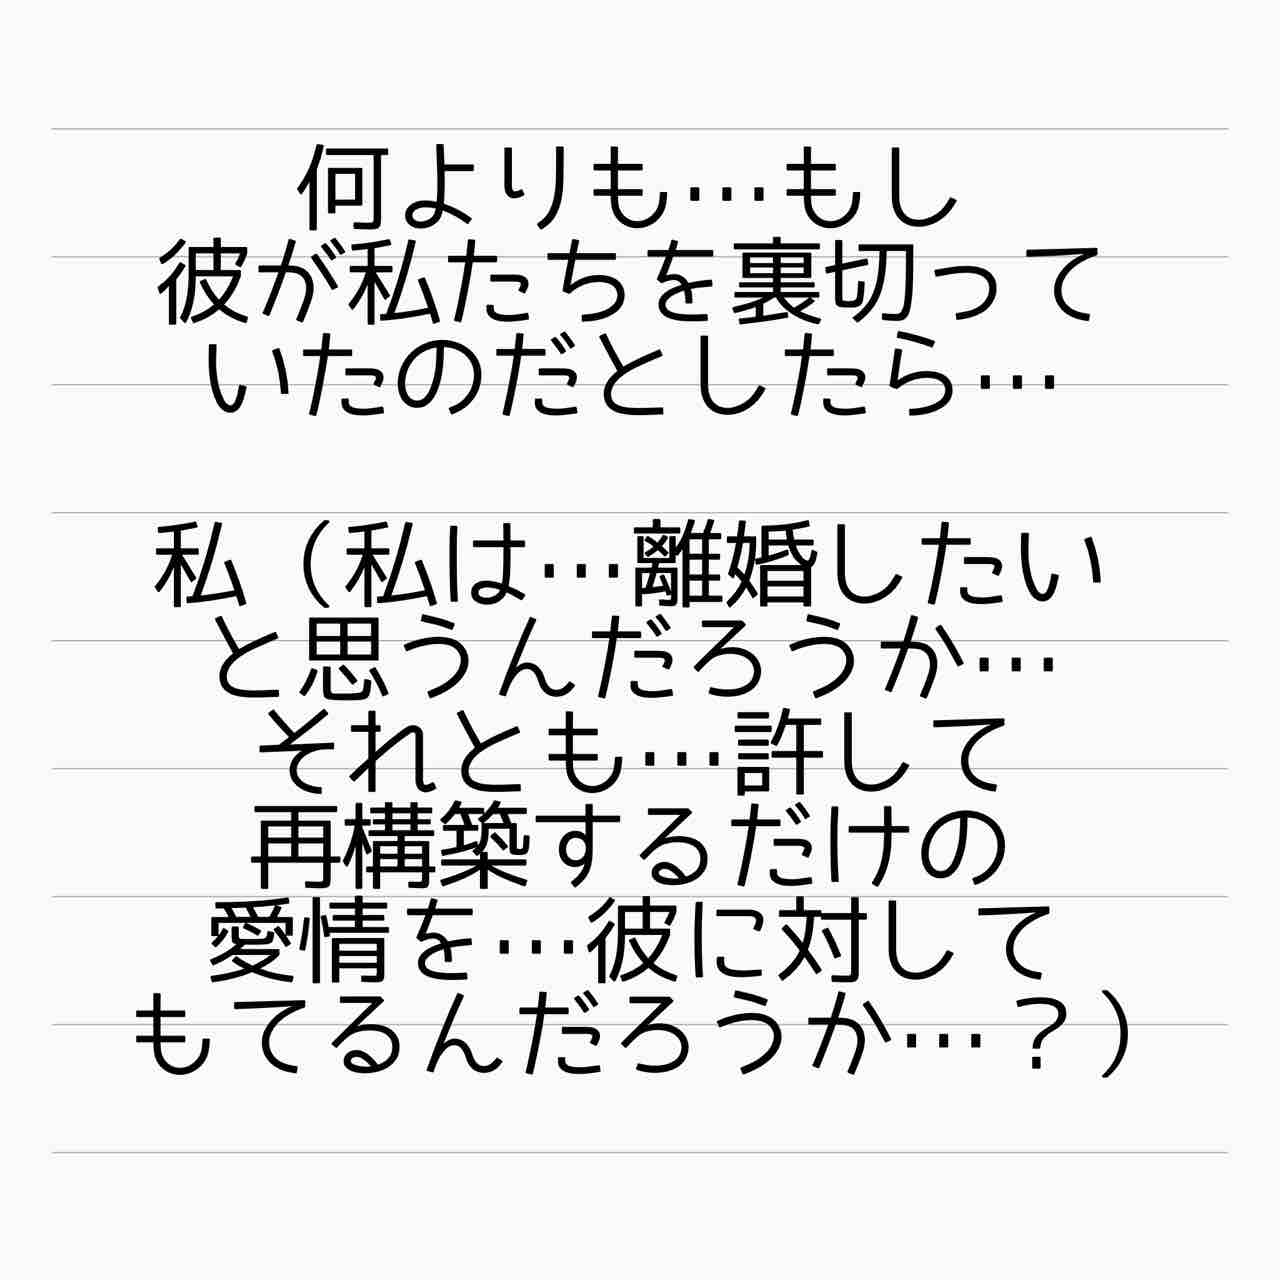 何よりも…もし
彼が私たちを裏切って
いたのだとしたら…
私（私は…離婚したい
と思うんだろうか…
それとも…許して
再構築するだけの
愛情を…彼に対して
もてるんだろうか…？）